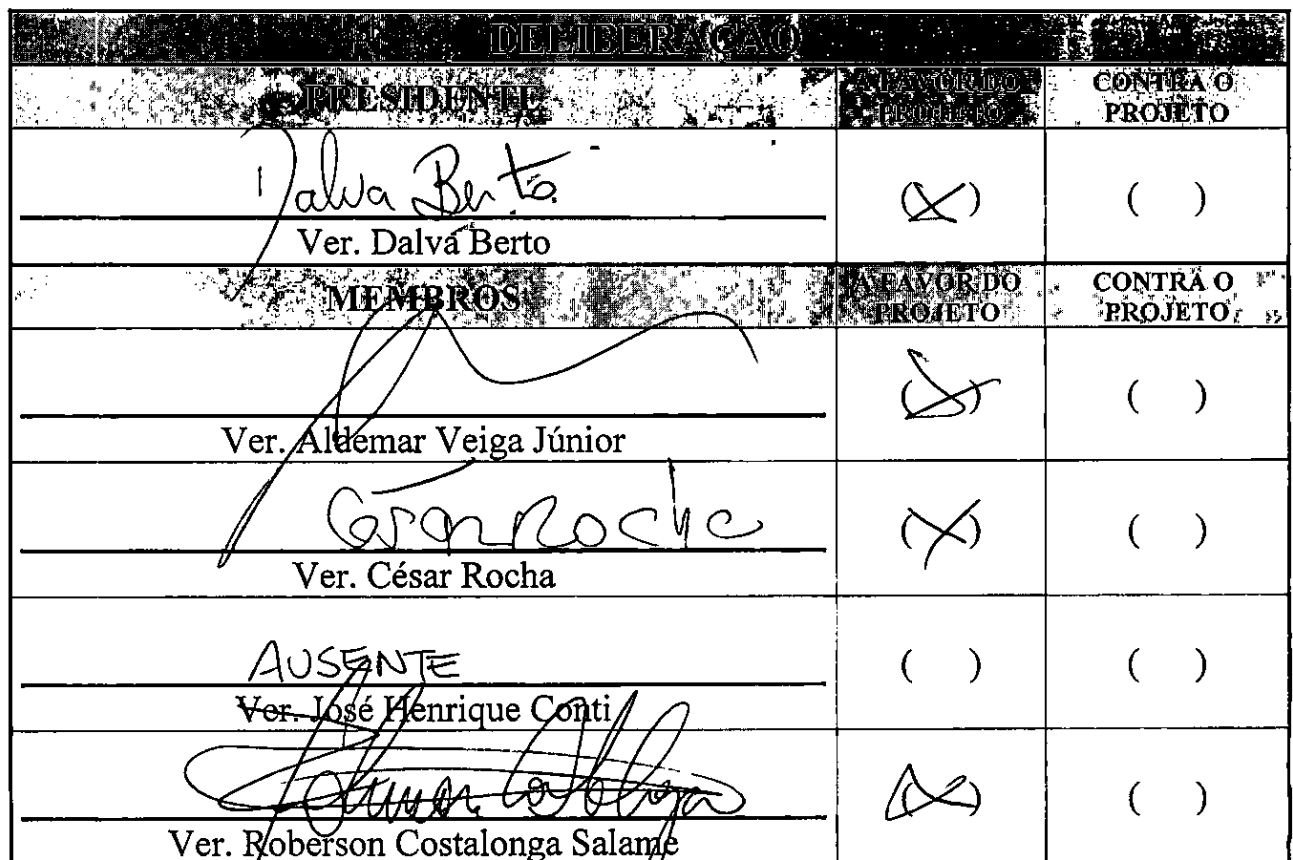 DELIBERAÇÃO
PRESIDENTE A FAVOR DO PROJETO CONTRA O PROJETO
Dalva Berto
(X) ( )
Ver. Dalva Berto
MEMBROS A FAVOR DO PROJETO CONTRA O PROJETO
(X) ( )
Ver. Aldemar Veiga Júnior
César Rocha (X) ( )
Ver. César Rocha
AUSENTE ( ) ( )
Ver. José Henrique Conti
(X) ( )
Ver. Roberson Costalonga Salame